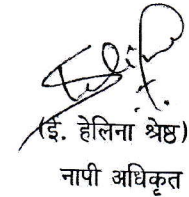 (ई. हेलिना श्रेष्ठ)
नापी अधिकृत